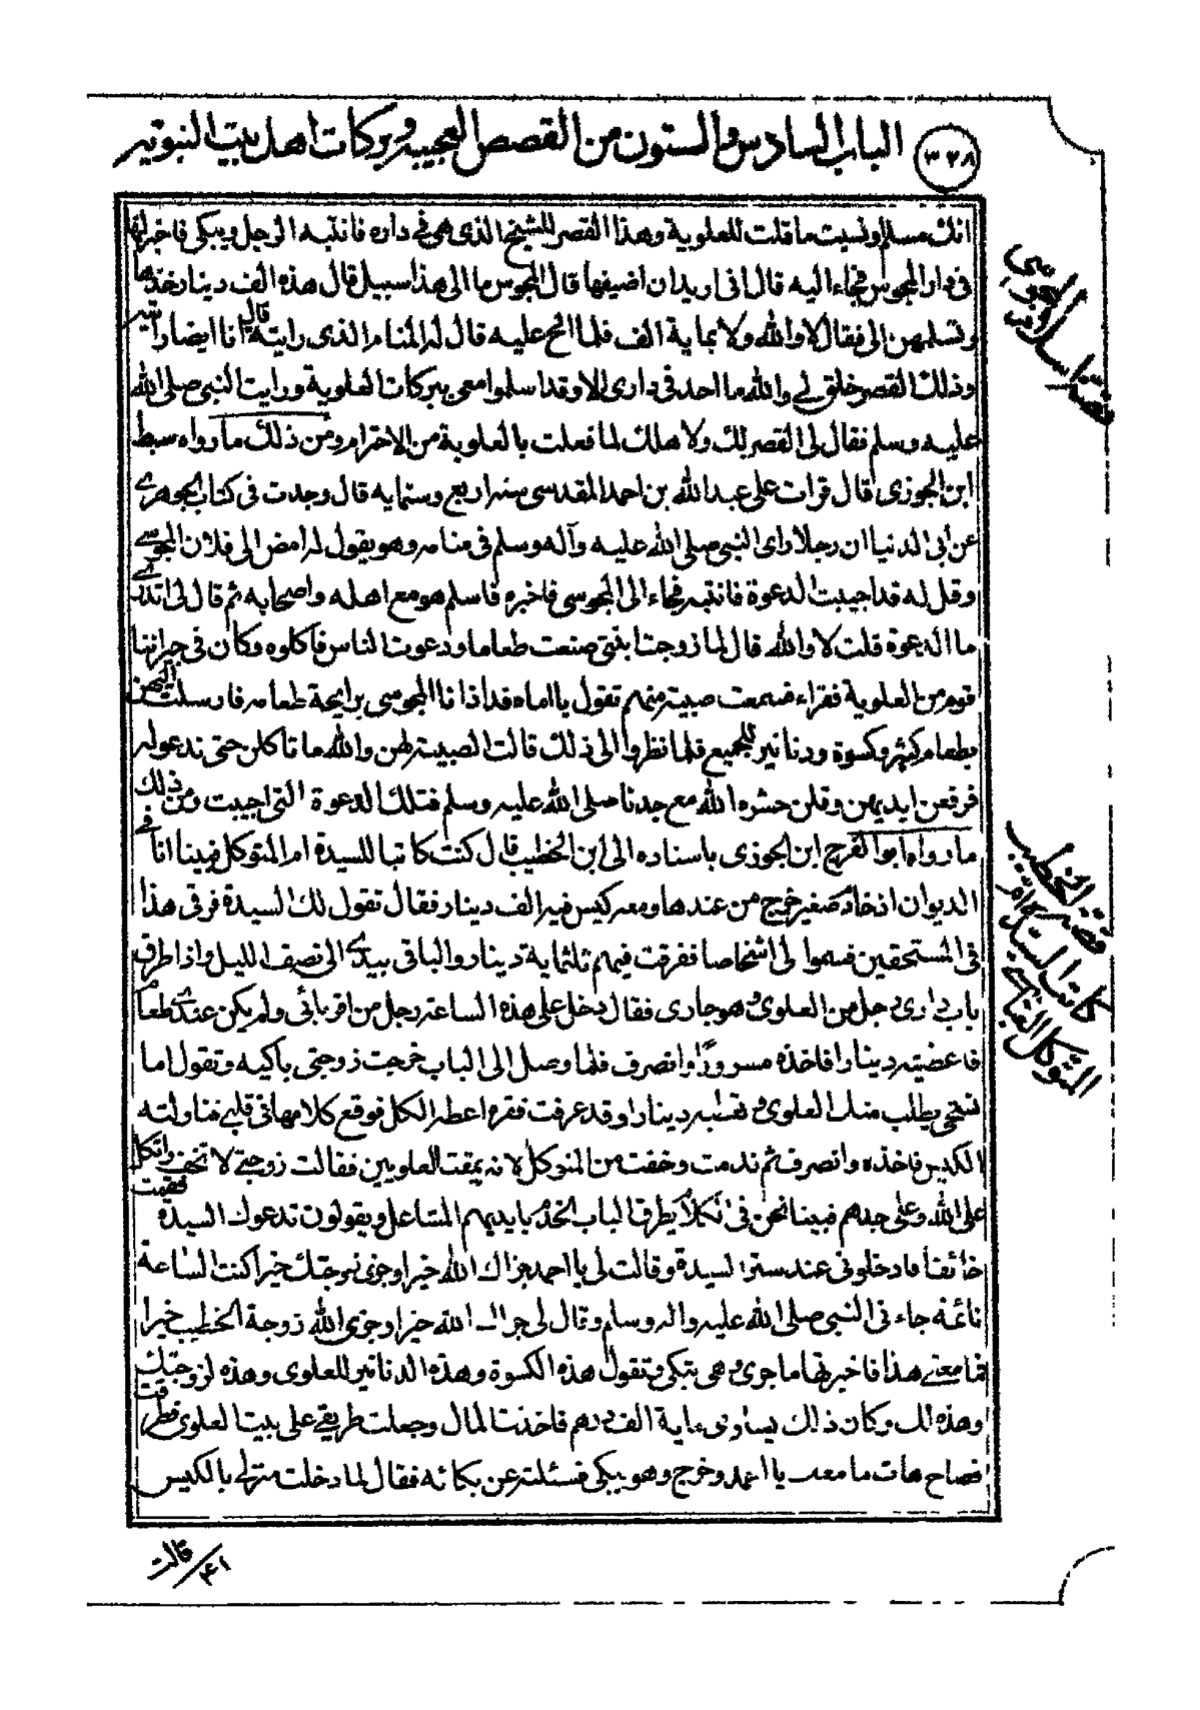 ٣٢٨
الباب السادس والستون من القصص العجيبه وبركات اهل بيت النبوة
انك مسلم ونسيت ما قلت للعلوية وهذا القصر للشيخ الذى هى فى داره فانتبه الرجل ويبكى فاخبر انها
فى دار المجوس فجاء اليه قال انى اريد ان اضيفها قال المجوس ما الى هذا سبيل قال هذه الف دينار خذها
وتسلمهن الى فقال لا والله ولا بماية الف فلما الح عليه قال له المنام الذى رايته قال انا ايضا رايته
وذلك القصر خلق لى والله ما احد فى دارى الا وقد اسلموا معى ببركات العلوية ورايت النبى صلى الله
عليه وسلم فقال لى القصر لك ولاهلك لما فعلت بالعلوية من الاحترام ومن ذلك ما رواه سبط
ابن الجوزى قال قرات على عبد الله بن احمد المقدسى سنه اربع وستمايه قال وجدت فى كتاب الجوهرى
عن أبى الدنيا ان رجلا راى النبى صلى الله عليه وآله وسلم فى منامه وهو يقول له امض الى فلان المجوسى
وقل له قد اجيبت الدعوة فانتبه فجاء الى المجوسى فاخبره فاسلم هو مع اهله واصحابه ثم قال لى اتدرى
ما الدعوة قلت لا والله قال لما زوجت ابنتى صنعت طعاما ودعوت الناس فاكلوه وكان فى جيراننا
قوم من العلوية فقراء فسمعت صبية منهم تقول يا اماه قد اذانا المجوسى برايحة طعامه فارسلت اليهن
بطعام كثير وكسوة ودنانير للجميع فلما نظروا الى ذلك قالت الصبية لهن والله ما تاكلن حتى ندعو له
فرفعن ايديهن وقلن حشره الله مع جدنا صلى الله عليه وسلم فتلك الدعوة التى اجيبت ومن ذلك
ما رواه ابو الفرج ابن الجوزى باسناده الى ابن الخطيب قال كنت كاتبا للسيدة ام المتوكل فبينا انا فى
الديوان اذ خادم صغير خرج من عندها ومعه كيس فيه الف دينار فقال تقول لك السيدة فرقى هذا
فى المستحقين فسموا لى اشخاصا ففرقت فيهم ثلثماية دينار والباقى بيدى الى نصف الليل واذا طرق
باب دارى رجل من العلوى وهو جارى فقال دخل على هذه الساعة رجل من اقربائى ولم يكن عندى طعام
فاعضيته دينارا فاخذه مسرورًا وانصرف فلما وصل الى الباب خرجت زوجتى باكيه وتقول اما
تستحى يطلب منك العلوى وتعطيه دينارا وقد عرفت فقره اعطه الكل فوقع كلامها فى قلبى فناولته
الكيس فاخذه وانصرف ثم ندمت وخفت من المتوكل لانه يمقت العلويين فقالت زوجتى لا تخف واتكل
على الله وعلى جدهم فبينا نحن فى الكلام يطرق الباب الخدم بايديهم المشاعل ويقولون تدعوك السيده فقمت
خائفا فادخلونى عند ستر السيدة وقالت لى يا احمد جزاك الله خيرا وجزى زوجتك خيرا كنت الساعة
نائمه جاءنى النبى صلى الله عليه واله وسلم وقال لى جزاك الله خيرا وجزى الله زوجة الخطيب خيرا
فما معنى هذا فاخبرتها ما جرى وهى تبكى وتقول هذه الكسوة وهذه الدنانير للعلوى وهذه لزوجتك
وهذه لك وكان ذلك يساوى ماية الف درهم فاخذت المال وجعلت طريقى على بيت العلوى فطرقت
فصاح هات ما معك يا احمد وخرج وهو يبكى فسئلته عن بكائه فقال لما دخلت منزلى بالكيس
قصه اسلام المجوسى
قصه ابن الخطيب كاتب السيده ام المتوكل العباسى
قالت
٤١